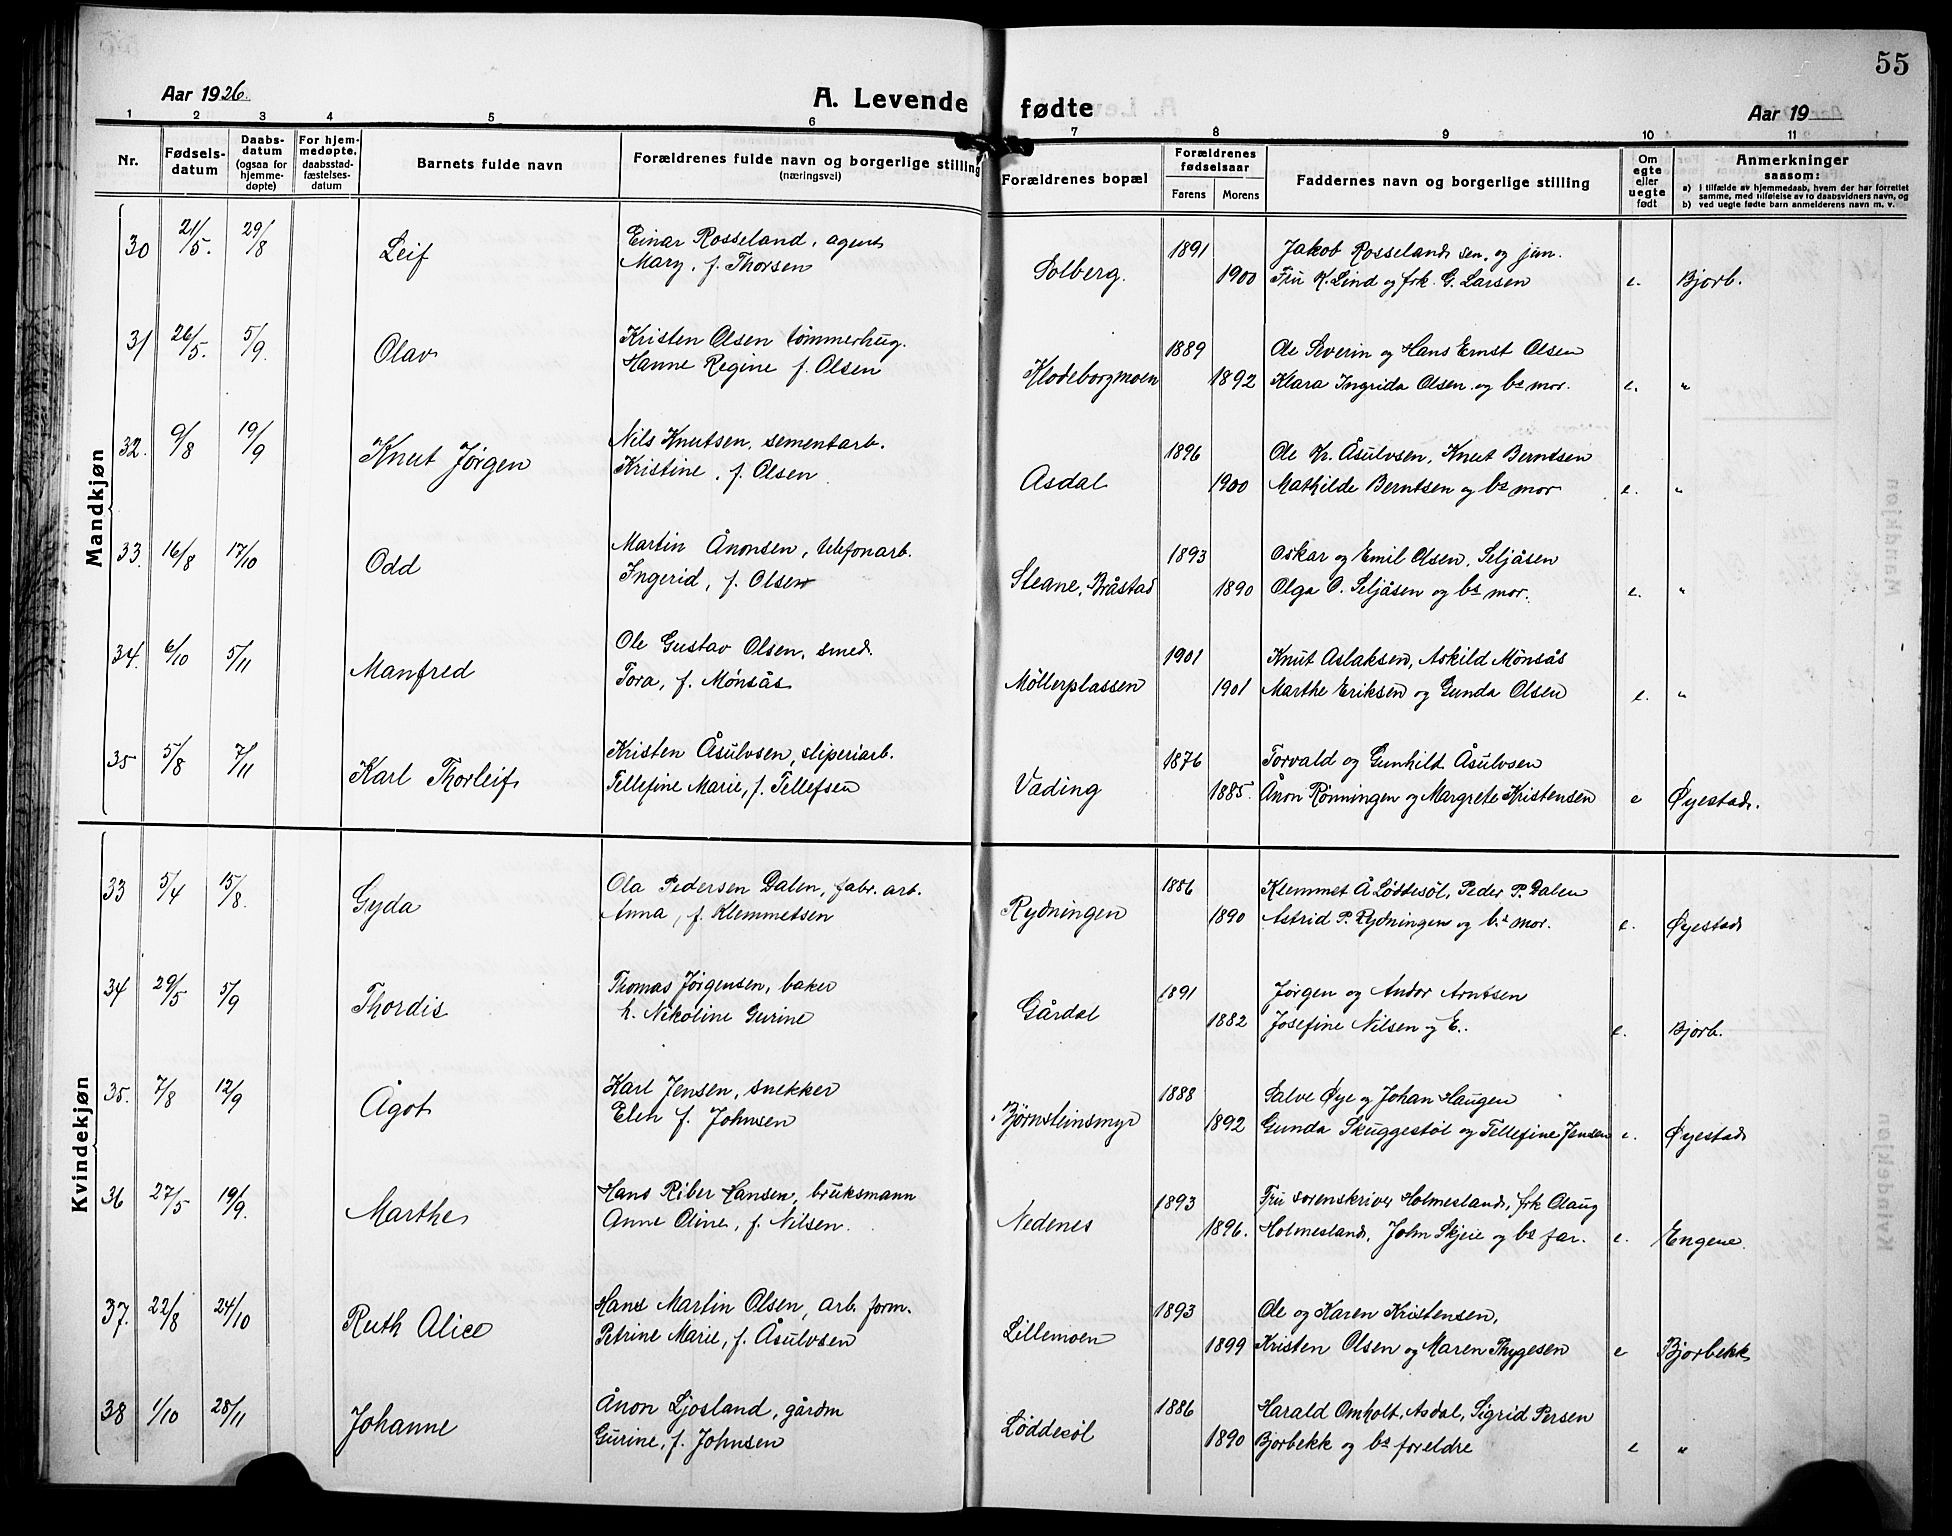 55
Aar 1926.
A. Levende fødte
Aar 19
1 2 3 4 5 6 7 8 9 10 11
Nr.
Fødsels-
datum
Daabs-
datum
(ogsaa for
hjemme-
døpte)
For hjem-
medøpte.
daabsstad-
fæstelses-
datum
Barnets fulde navn
Forældrenes fulde navn og borgerlige stilling
(næringsvei)
Forældrenes bopæl
Forældrenes
fødselsaar
Farens Morens
Faddernes navn og borgerlige stilling
Om
egte
eller
uegte
født
Anmerkninger
saasom:
a) i tilfælde av hjemmedaab, hvem der har forrettet
samme, med tilføielse av to daabsvidners navn, og
b) ved uegte fødte barn anmelderens navn m. v.
Mandkjøn
30 21/5. 29/8 Leif Einar Rosseland, agent 1891 Jakob Rosseland sen. og jun.
Mary, f. Thorsen Solberg. 1900 Fru K. Lind og frk. G. Larsen e. Bjorb.
31 26/5. 5/9. Olav Kristen Olsen tømmerhug. 1889 Ole Severin og Hans Ernst Olsen
Hanne Regine f. Olsen Klodeborgmoen 1892 Klara Ingrida Olsen og bs mor. e. "
32. 9/8 19/9 Knut Jørgen Nils Knutsen, sementarb. 1896 Ole Kr. Åsulvsen, Knut Berntsen
Kristine, f. Olsen Asdal 1900 Mathilde Berntsen og bs mor e. "
33. 16/8 17/10 Odd Martin Ånonsen, telefonarb. 1893 Oskar og Emil Olsen, Seljåsen
Ingerid, f. Olsen Steane, Bråstad 1890 Olga O. Seljåsen og bs mor. e. "
34. 6/10 5/11 Manfred Ole Gustav Olsen, smed. 1901 Knut Aslaksen, Askild Mønsås
Tora, f. Mønsås Möllerplassen 1901 Marthe Eriksen og Gunda Olsen e. "
35 5/8 7/11 Karl Thorleif Kristen Åsulvsen, sliperiarb. 1876 Torvald og Gunhild Åsulvsen
Tellefine Marie, f. Tellefsen Vading 1885. Ånon Rønningen og Margrete Kristensen e Øyestad.
Kvindekjøn
33 5/4 15/8. Gyda Ola Pedersen Dalen, fabr. arb. 1886 Klemmet Å Løddesøl, Peder P. Dalen
Anna, f. Klemmetsen Rydningen 1890 Astrid P. Rydningen og bs mor. e. Øyestad
34 29/5 5/9 Thordis Thomas Jørgensen, baker 1891 Jørgen og Andor Arntsen
h. Nikoline Gurine Gårdal 1882 Josefine Nilsen og E.. e. Bjorb.
35. 7/8 12/9 Ågot Karl Jensen, snekker 1888 Salve Øye og Johan Haugen
Elen f. Johnsen Bjørnsteinsmyr 1892 Gunda Skuggestøl og Tellefine Jensen e. Øyestad
36 27/5 19/9. Marthe Hans Riber Hansen, bruksmann 1893 Fru sorenskriver Holmesland, frk Olaug
Anne Oline, f. Nilsen. Nedenes 1896. Holmesland, John Skjeie og bs far. e. Engene.
37. 22/8 24/10 Ruth Alice Hans Martin Olsen, arb. form. 1893 Ole og Karen Kristensen,
Petrine Marie, f. Åsulvsen Lillemoen 1899 Kristen Olsen og Maren Thygesen e Bjorbekk
38 1/10 28/11 Johanne Ånon Ljosland, gårdm 1886 Harald Omholt, Asdal, Sigrid Persen
Gurine, f. Johnsen Løddesøl 1890 Bjorbekk og bs foreldre e "